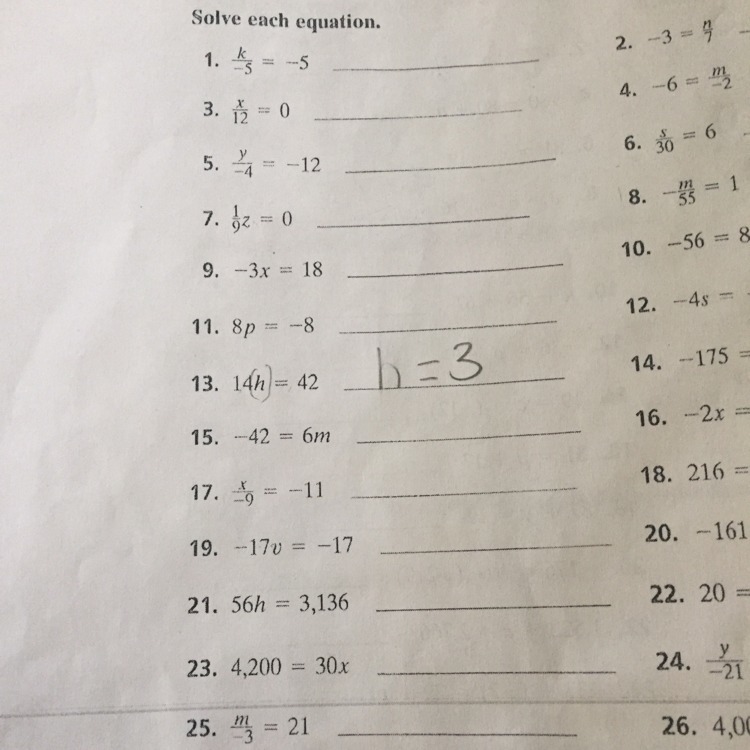 Solve each equation.
1. k/-5 = -5
2. -3 = n/7
3. x/12 = 0
4. -6 = m/-2
5. y/-4 = -12
6. s/30 = 6
7. 1/9z = 0
8. -m/55 = 1
9. -3x = 18
10. -56 = 8
11. 8p = -8
12. -4s =
13. 14(h) = 42 h = 3
14. -175 =
15. -42 = 6m
16. -2x =
17. x/-9 = -11
18. 216 =
19. -17v = -17
20. -161
21. 56h = 3,136
22. 20 =
23. 4,200 = 30x
24. y/-21
25. m/-3 = 21
26. 4,00